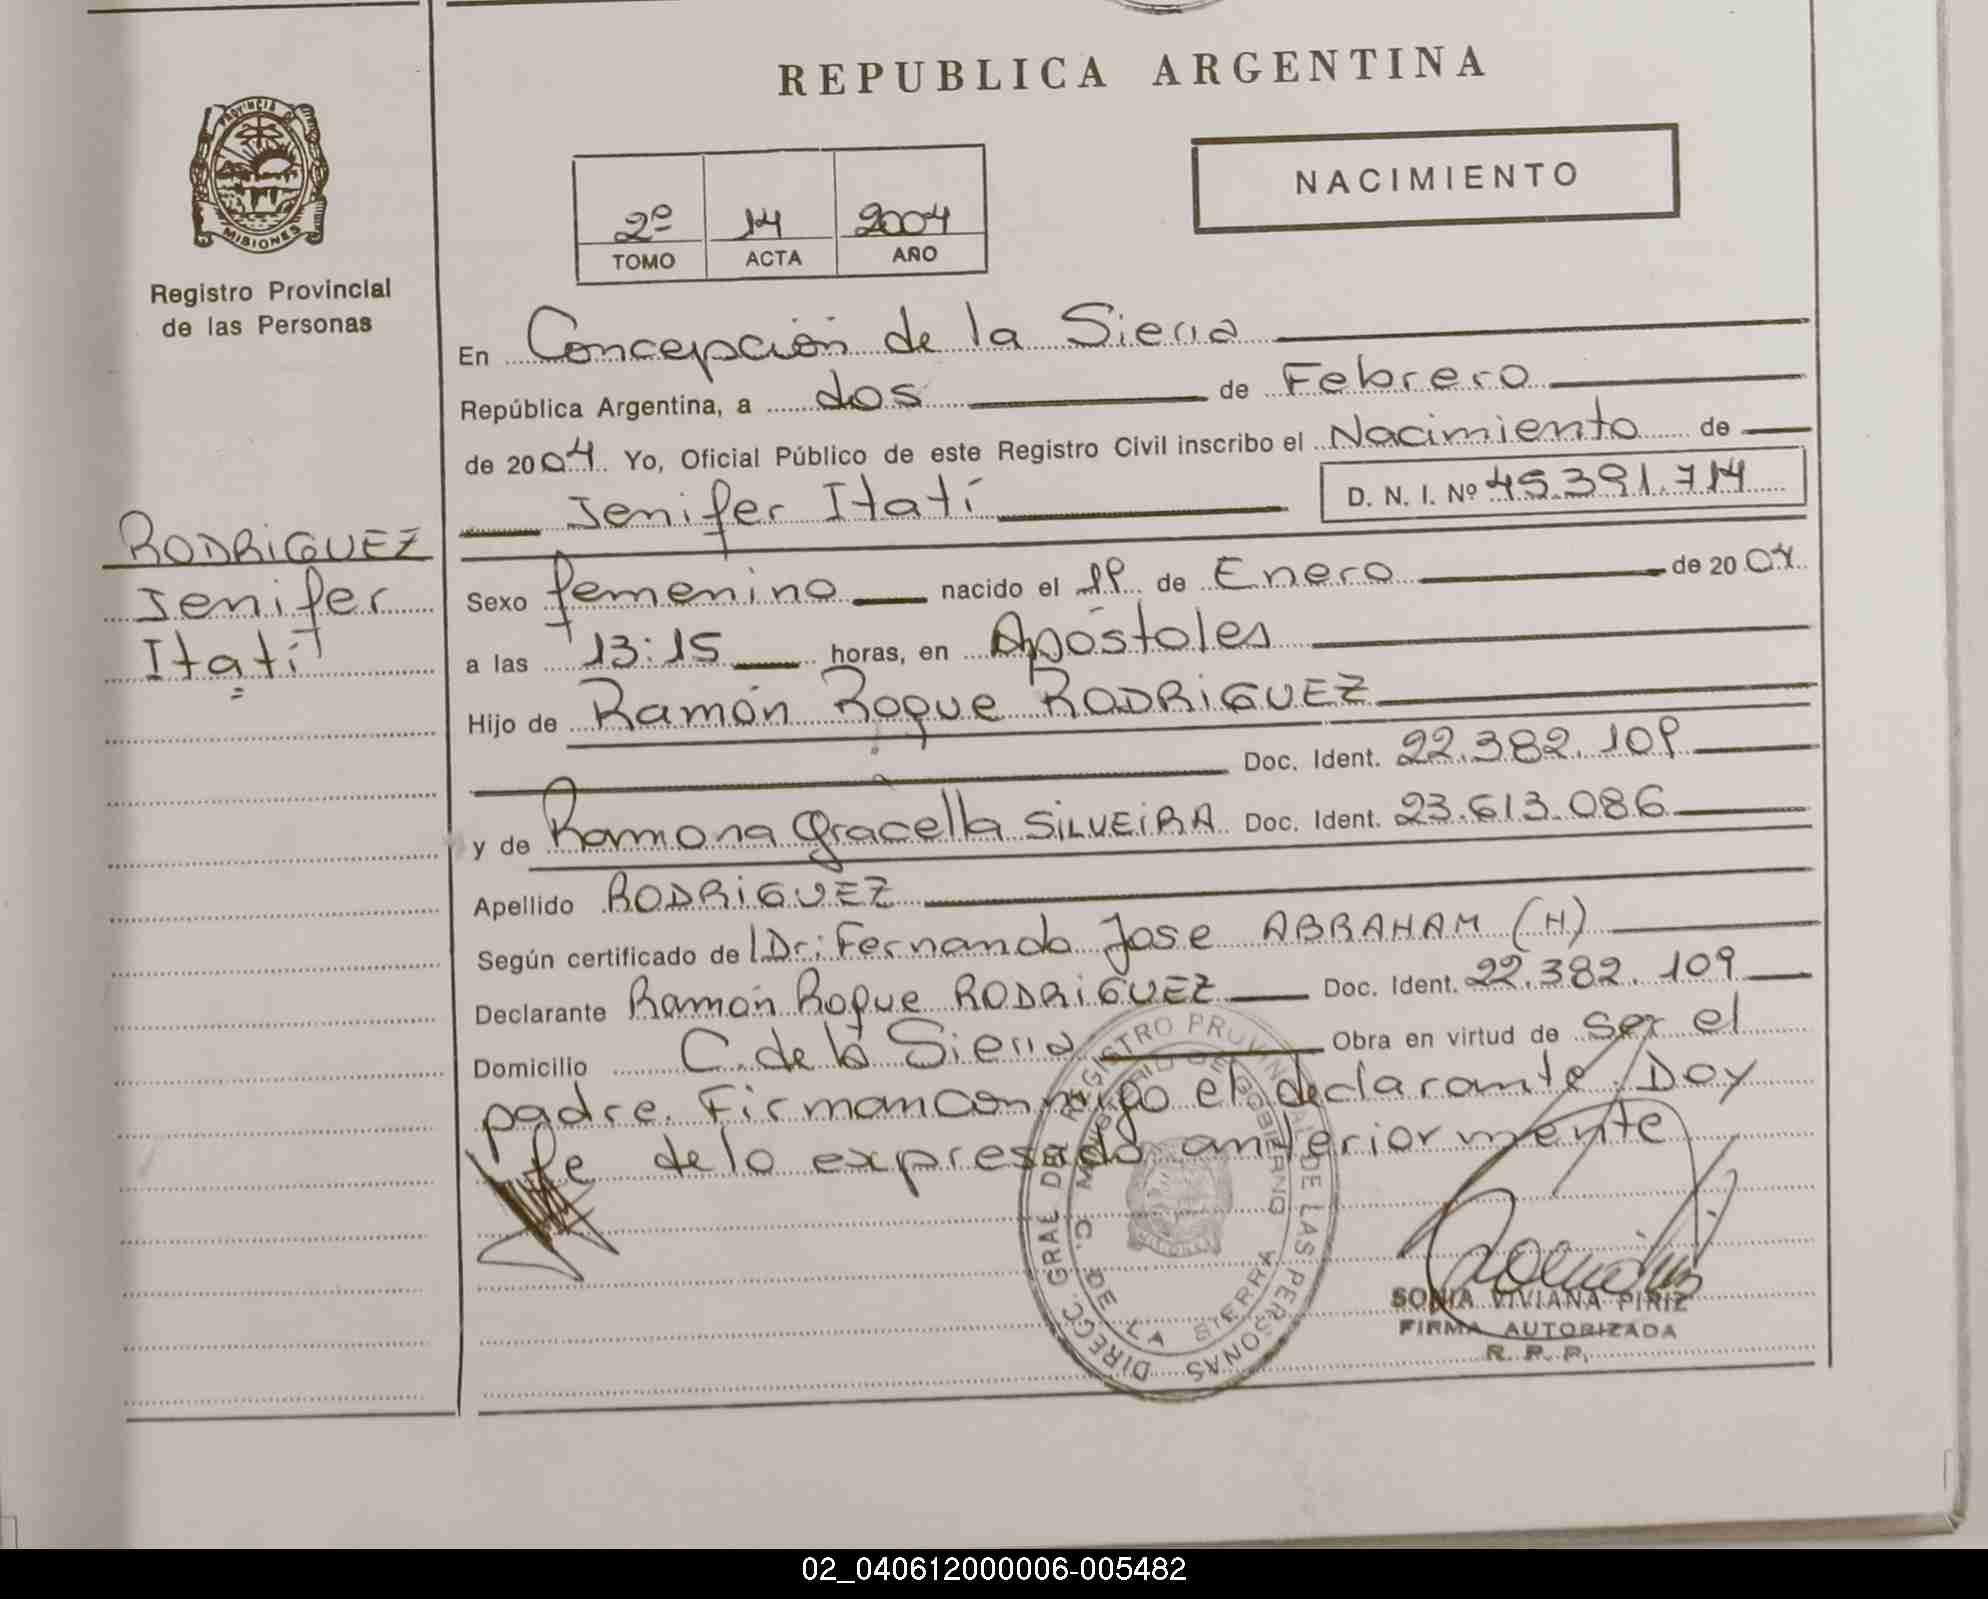 REPUBLICA ARGENTINA
PROVINCIA DE
MISIONES
Registro Provincial
de las Personas
2º 14 2004
TOMO ACTA AÑO
NACIMIENTO
En Concepción de la Sierra
República Argentina, a dos de Febrero
de 2004. Yo, Oficial Público de este Registro Civil inscribo el Nacimiento de
Jenifer Itatí D. N. I. Nº 45.391.714
RODRIGUEZ
Jenifer
Itatí
Sexo femenino nacido el 19 de Enero de 2004
a las 13:15 horas, en Apóstoles
Hijo de Ramón Roque RODRIGUEZ
Doc. Ident. 22.382.109
y de Ramona Gracella SILVEIRA Doc. Ident. 23.613.086
Apellido RODRIGUEZ
Según certificado de l Dr: Fernando Jose ABRAHAM (H)
Declarante Ramón Roque RODRIGUEZ Doc. Ident. 22.382.109
Domicilio C. de la Sierra Obra en virtud de ser el
padre. Firman conmigo el declarante. Doy
fe de lo expresado anteriormente
DIRECC. GRAL DEL REGISTRO PROVINCIAL DE LAS PERSONAS
C. DE LA SIERRA
SONIA VIVIANA PIRIZ
FIRMA AUTORIZADA
R. P. P.
02_040612000006-005482